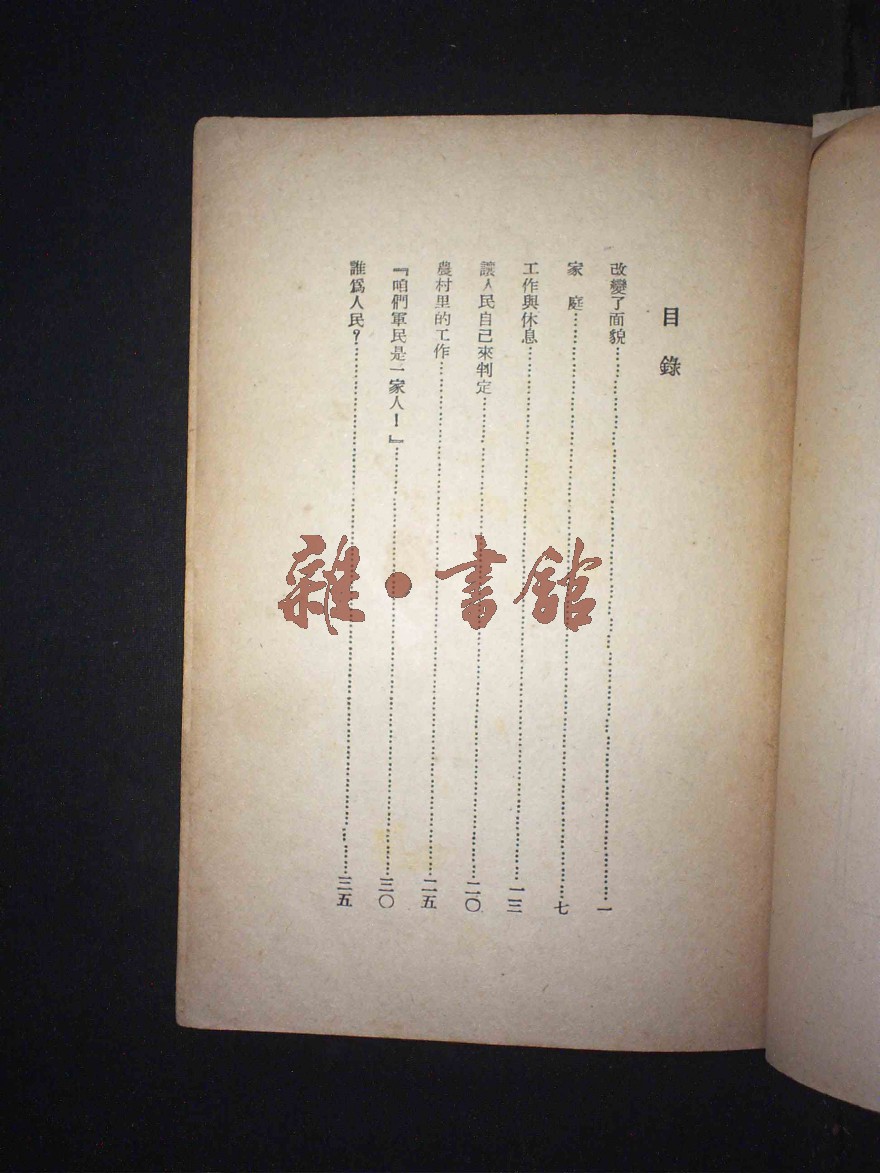 目錄
改變了面貌……一
家庭……七
工作與休息……一三
讓人民自己來判定……二〇
農村里的工作……二五
『咱們軍民是一家人！』……三〇
誰爲人民？……三五
雜·書館